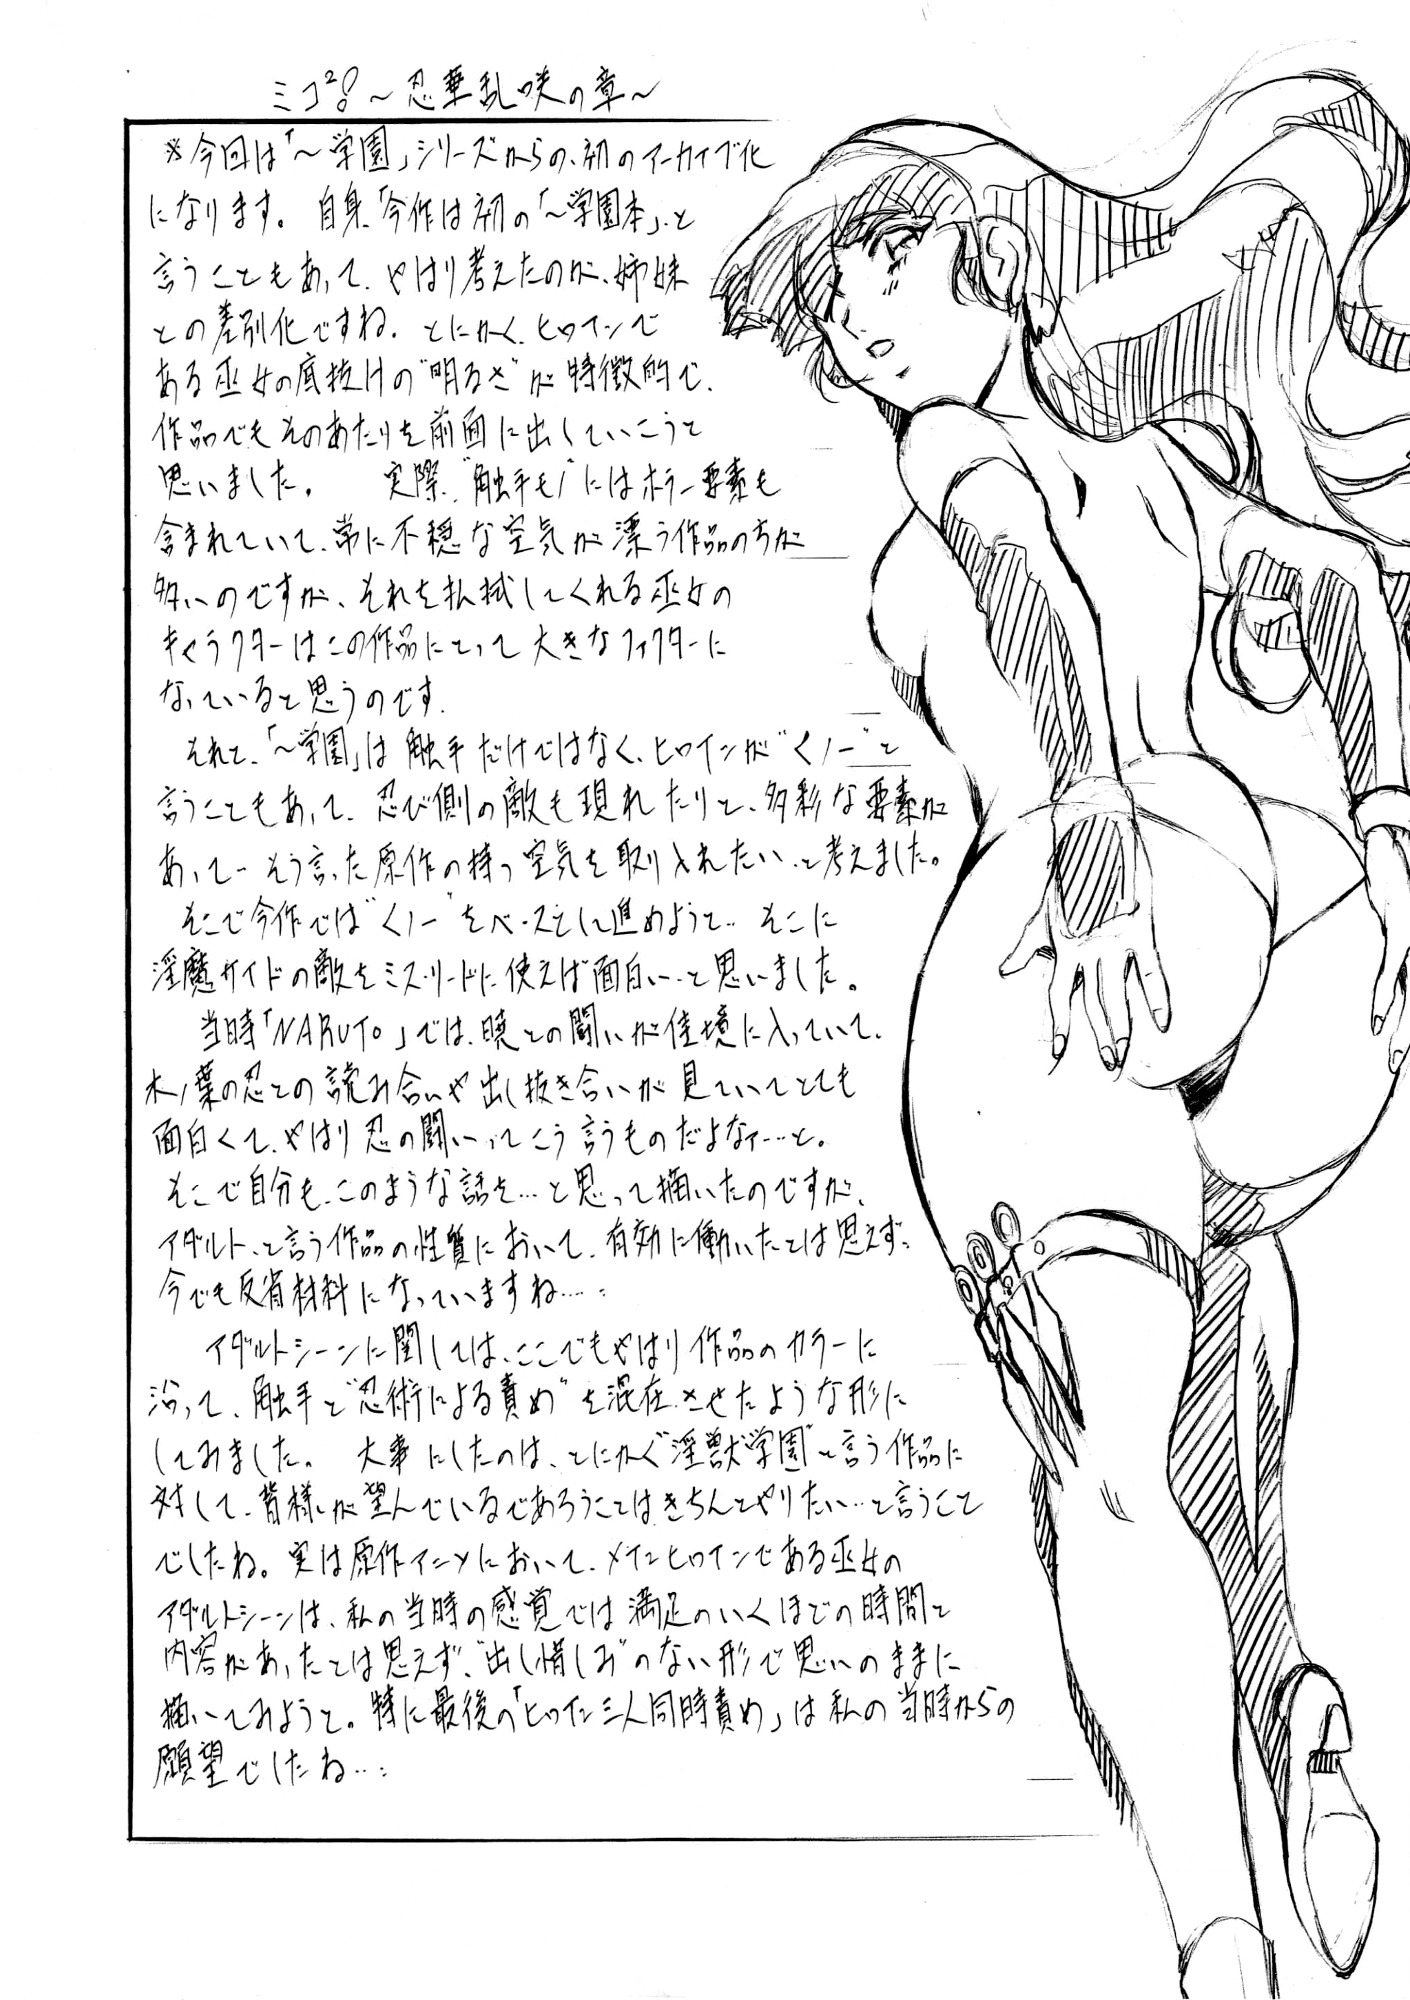 ミコ²! ～忍華乱咲の章～
※今回は「～学園」シリーズからの、初のアーカイブ化
になります。 自身「今作は初の「～学園本」、と
言うこともあって、やはり考えたのが、姉妹
との差別化ですね。とにかく、ヒロインで
ある巫女の底抜けの"明るさ"が特徴的で、
作品でもそのあたりを前面に出していこうと
思いました。 実際、"触手モノ"にはホラー要素も
含まれていて、常に不穏な空気が漂う作品のちが
多いのですが、それを払拭してくれる巫女の
キャラクターはこの作品にとって大きなファクターに
なっていると思うのです。
それと、「～学園」は触手だけではなく、ヒロインが"くノ一"と
言うこともあって、忍び側の敵も現れたりと、多彩な要素が
あって‥そう言った原作の持つ空気を取り入れたい、と考えました。
そこで今作では"くノ一"をベースとして進めようと‥そこに
淫魔サイドの敵をミスリードに使えば面白い‥と思いました。
当時「NARUTO」では、暁との闘いが佳境に入っていて、
木ノ葉の忍との読み合いや出し抜き合いが見ていてとても
面白くて、やはり忍の闘いってこう言うものだよなァ…と。
そこで自分も、このような話を…と思って描いたのですが、
アダルト、と言う作品の性質において、有効に働いたとは思えず、
今でも反省材料になっていますね…。
アダルトシーンに関しては、ここでもやはり作品のカラーに
沿って、触手と"忍術による責め"を混在させたような形に
してみました。 大事にしたのは、とにかく"淫獣学園"と言う作品に
対して、皆様が望んでいるであろうことはきちんとやりたい…と言うこと
でしたね。実は原作アニメにおいて、メインヒロインである巫女の
アダルトシーンは、私の当時の感覚では満足のいくほどの時間と
内容があったとは思えず、"出し惜しみ"のない形で思いのままに
描いてみようと。特に最後の「ヒロイン三人同時責め」は私の当時からの
願望でしたね…。